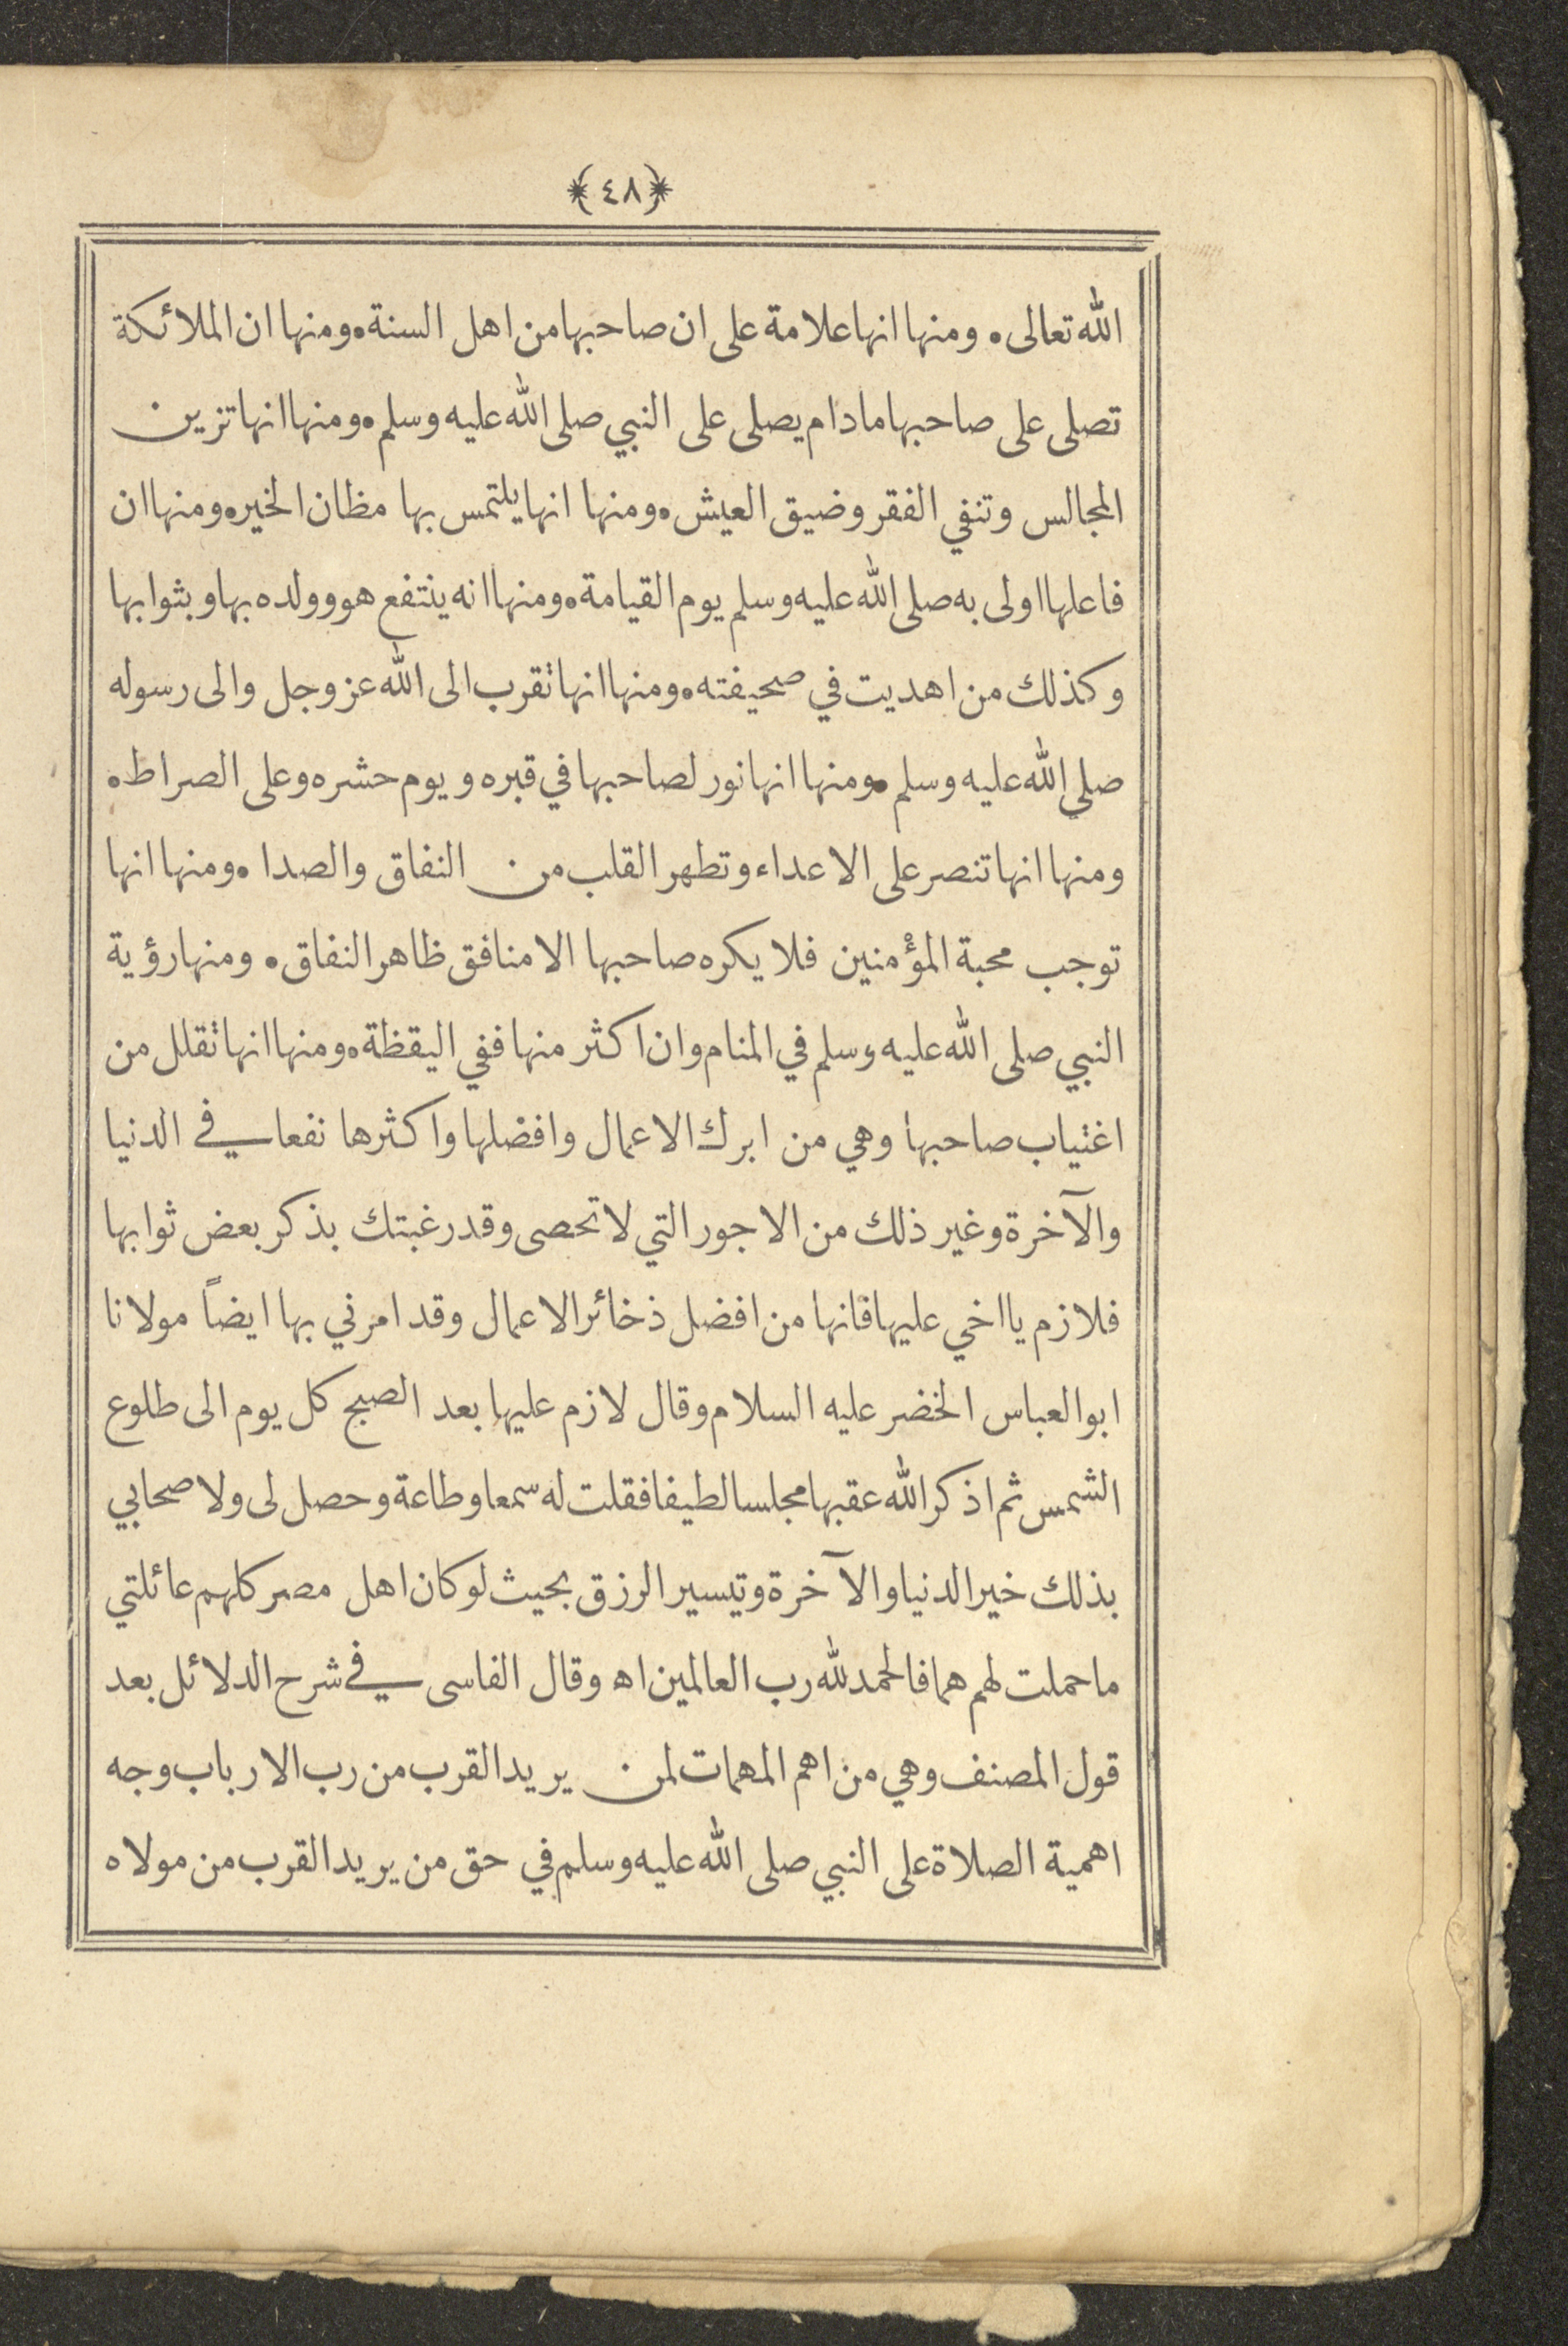 ﴿٤٨﴾
الله تعالى ٠ ومنها انها علامة على ان صاحبها من اهل السنة ٠ ومنها ان الملائكة
تصلى على صاحبها ما دام يصلى على النبي صلى الله عليه وسلم ٠ ومنها انها تزين
المجالس وتنفي الفقر وضيق العيش ٠ ومنها انها يلتمس بها مظان الخير ٠ ومنها ان
فاعلها اولى به صلى الله عليه وسلم يوم القيامة ٠ ومنها انه ينتفع هو وولده بها وبثوابها
وكذلك من اهديت في صحيفته ٠ ومنها انها تقرب الى الله عز وجل والى رسوله
صلى الله عليه وسلم ٠ ومنها انها نور لصاحبها في قبره ويوم حشره وعلى الصراط ٠
ومنها انها تنصر على الاعداء وتطهر القلب من النفاق والصدا ٠ ومنها انها
توجب محبة المؤمنين فلا يكره صاحبها الا منافق ظاهر النفاق ٠ ومنها رؤية
النبي صلى الله عليه وسلم في المنام وان اكثر منها ففي اليقظة ٠ ومنها انها تقلل من
اغتياب صاحبها وهي من ابرك الاعمال وافضلها واكثرها نفعا في الدنيا
والآخرة وغير ذلك من الاجور التي لا تحصى وقد رغبتك بذكر بعض ثوابها
فلازم يا اخي عليها فانها من افضل ذخائر الاعمال وقد امرني بها ايضاً مولانا
ابو العباس الخضر عليه السلام وقال لازم عليها بعد الصبح كل يوم الى طلوع
الشمس ثم اذكر الله عقبها مجلسا لطيفا فقلت له سمعا وطاعة وحصل لى ولاصحابي
بذلك خير الدنيا والآخرة وتيسير الرزق بحيث لو كان اهل مصر كلهم عائلتي
ما حملت لهم هما فالحمد لله رب العالمين اه وقال الفاسى في شرح الدلائل بعد
قول المصنف وهي من اهم المهمات لمن يريد القرب من رب الارباب وجه
اهمية الصلاة على النبي صلى الله عليه وسلم في حق من يريد القرب من مولاه